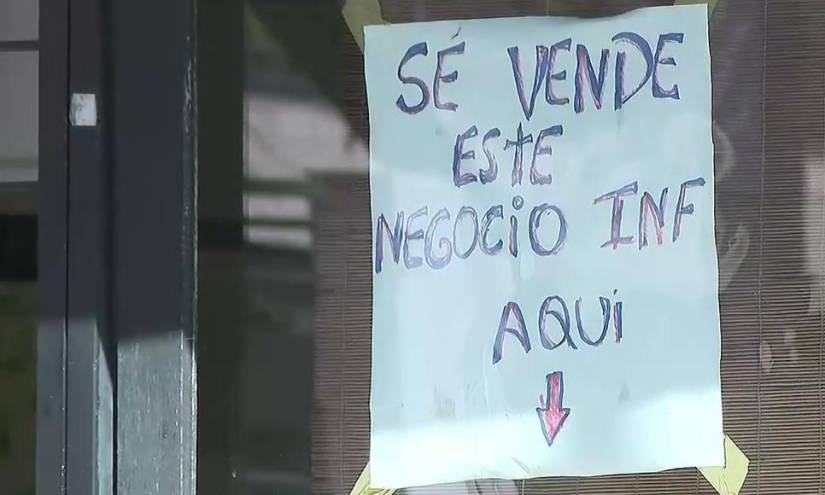 SÉ VENDE
ESTE
NEGOCIO INF
AQUi